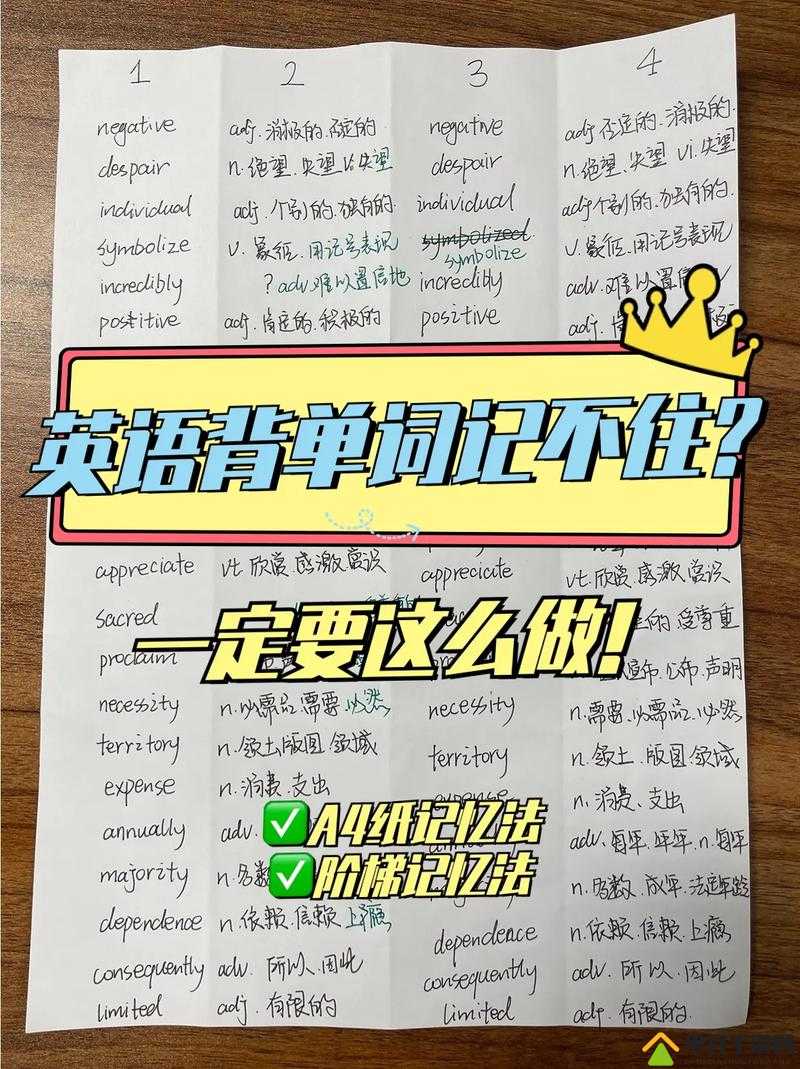 1 2 3 4
negative adj.消极的.否定的 negative adj 否定的.消极的.
despair n.绝望.失望 vi.失望 despair n.绝望.失望 vi.失望
individual adj.个别的.独有的. individual adj个别的.独有的.
symbolize v.象征.用记号表现 symbolized symbolize v.象征.用记号表现
incredibly ?adv.难以置信地 incredibly adv.难以置信
positive adj.肯定的.积极的 positive adj.
英语背单词记不住?
appreciate vt.欣赏.感激.赏识 appreciate vt.欣赏.感激.赏识
sacred 的.受尊重
一定要这么做!
proclaim 宣布.公布.声明
necessity n.必需品.需要.必然 necessity n.需要.必需品.必然
territory n.领土.版图.领域 territory n.领土.版图.领域
expense n.消费.支出 n.消费.支出
✅A4纸记忆法
annually adv. adv.每年.年年.n.每年
✅阶梯记忆法
majority n.多数 n.多数.成年.法定年龄
dependence n.依赖.信赖.上瘾 dependence n.依赖.信赖.上瘾
consequently adv.所以.因此 consequently adv.所以.因此
limited adj.有限的 limited adj.有限的.